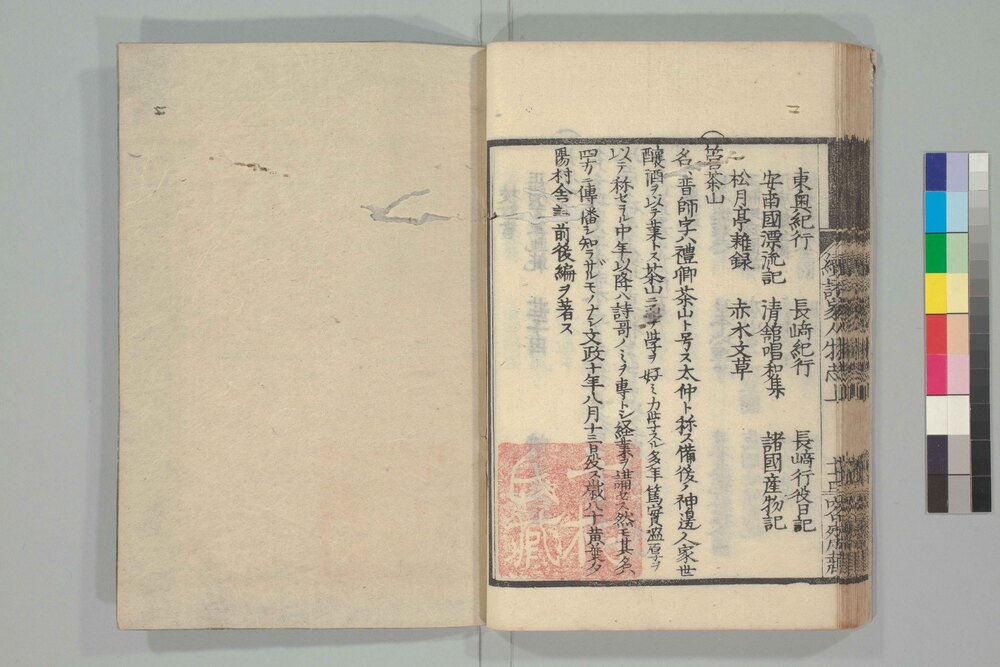 東奥紀行 長﨑紀行 長﨑行役日記
安南國漂流記 清舘唱和集 諸國産物記
松月亭雜録 赤水文草
菅茶山
名ハ晋師字ハ禮卿茶山ト号ス太仲ト称ス備後ノ神邊人家世
釀酒ヲ以テ業トス茶山ニ至テ学ヲ好ミ力学スル多年篤實温厚ヲ
以テ称セラル中年以降ハ詩哥ノミヲ専トシ経業ヲ講セス然モ其名
四方ニ傳播シ知ラザルモノナシ文政十年八月十三日殁ス歳八十黄葉夕
陽村舎詩前後編ヲ著ス
續諸家人物志上